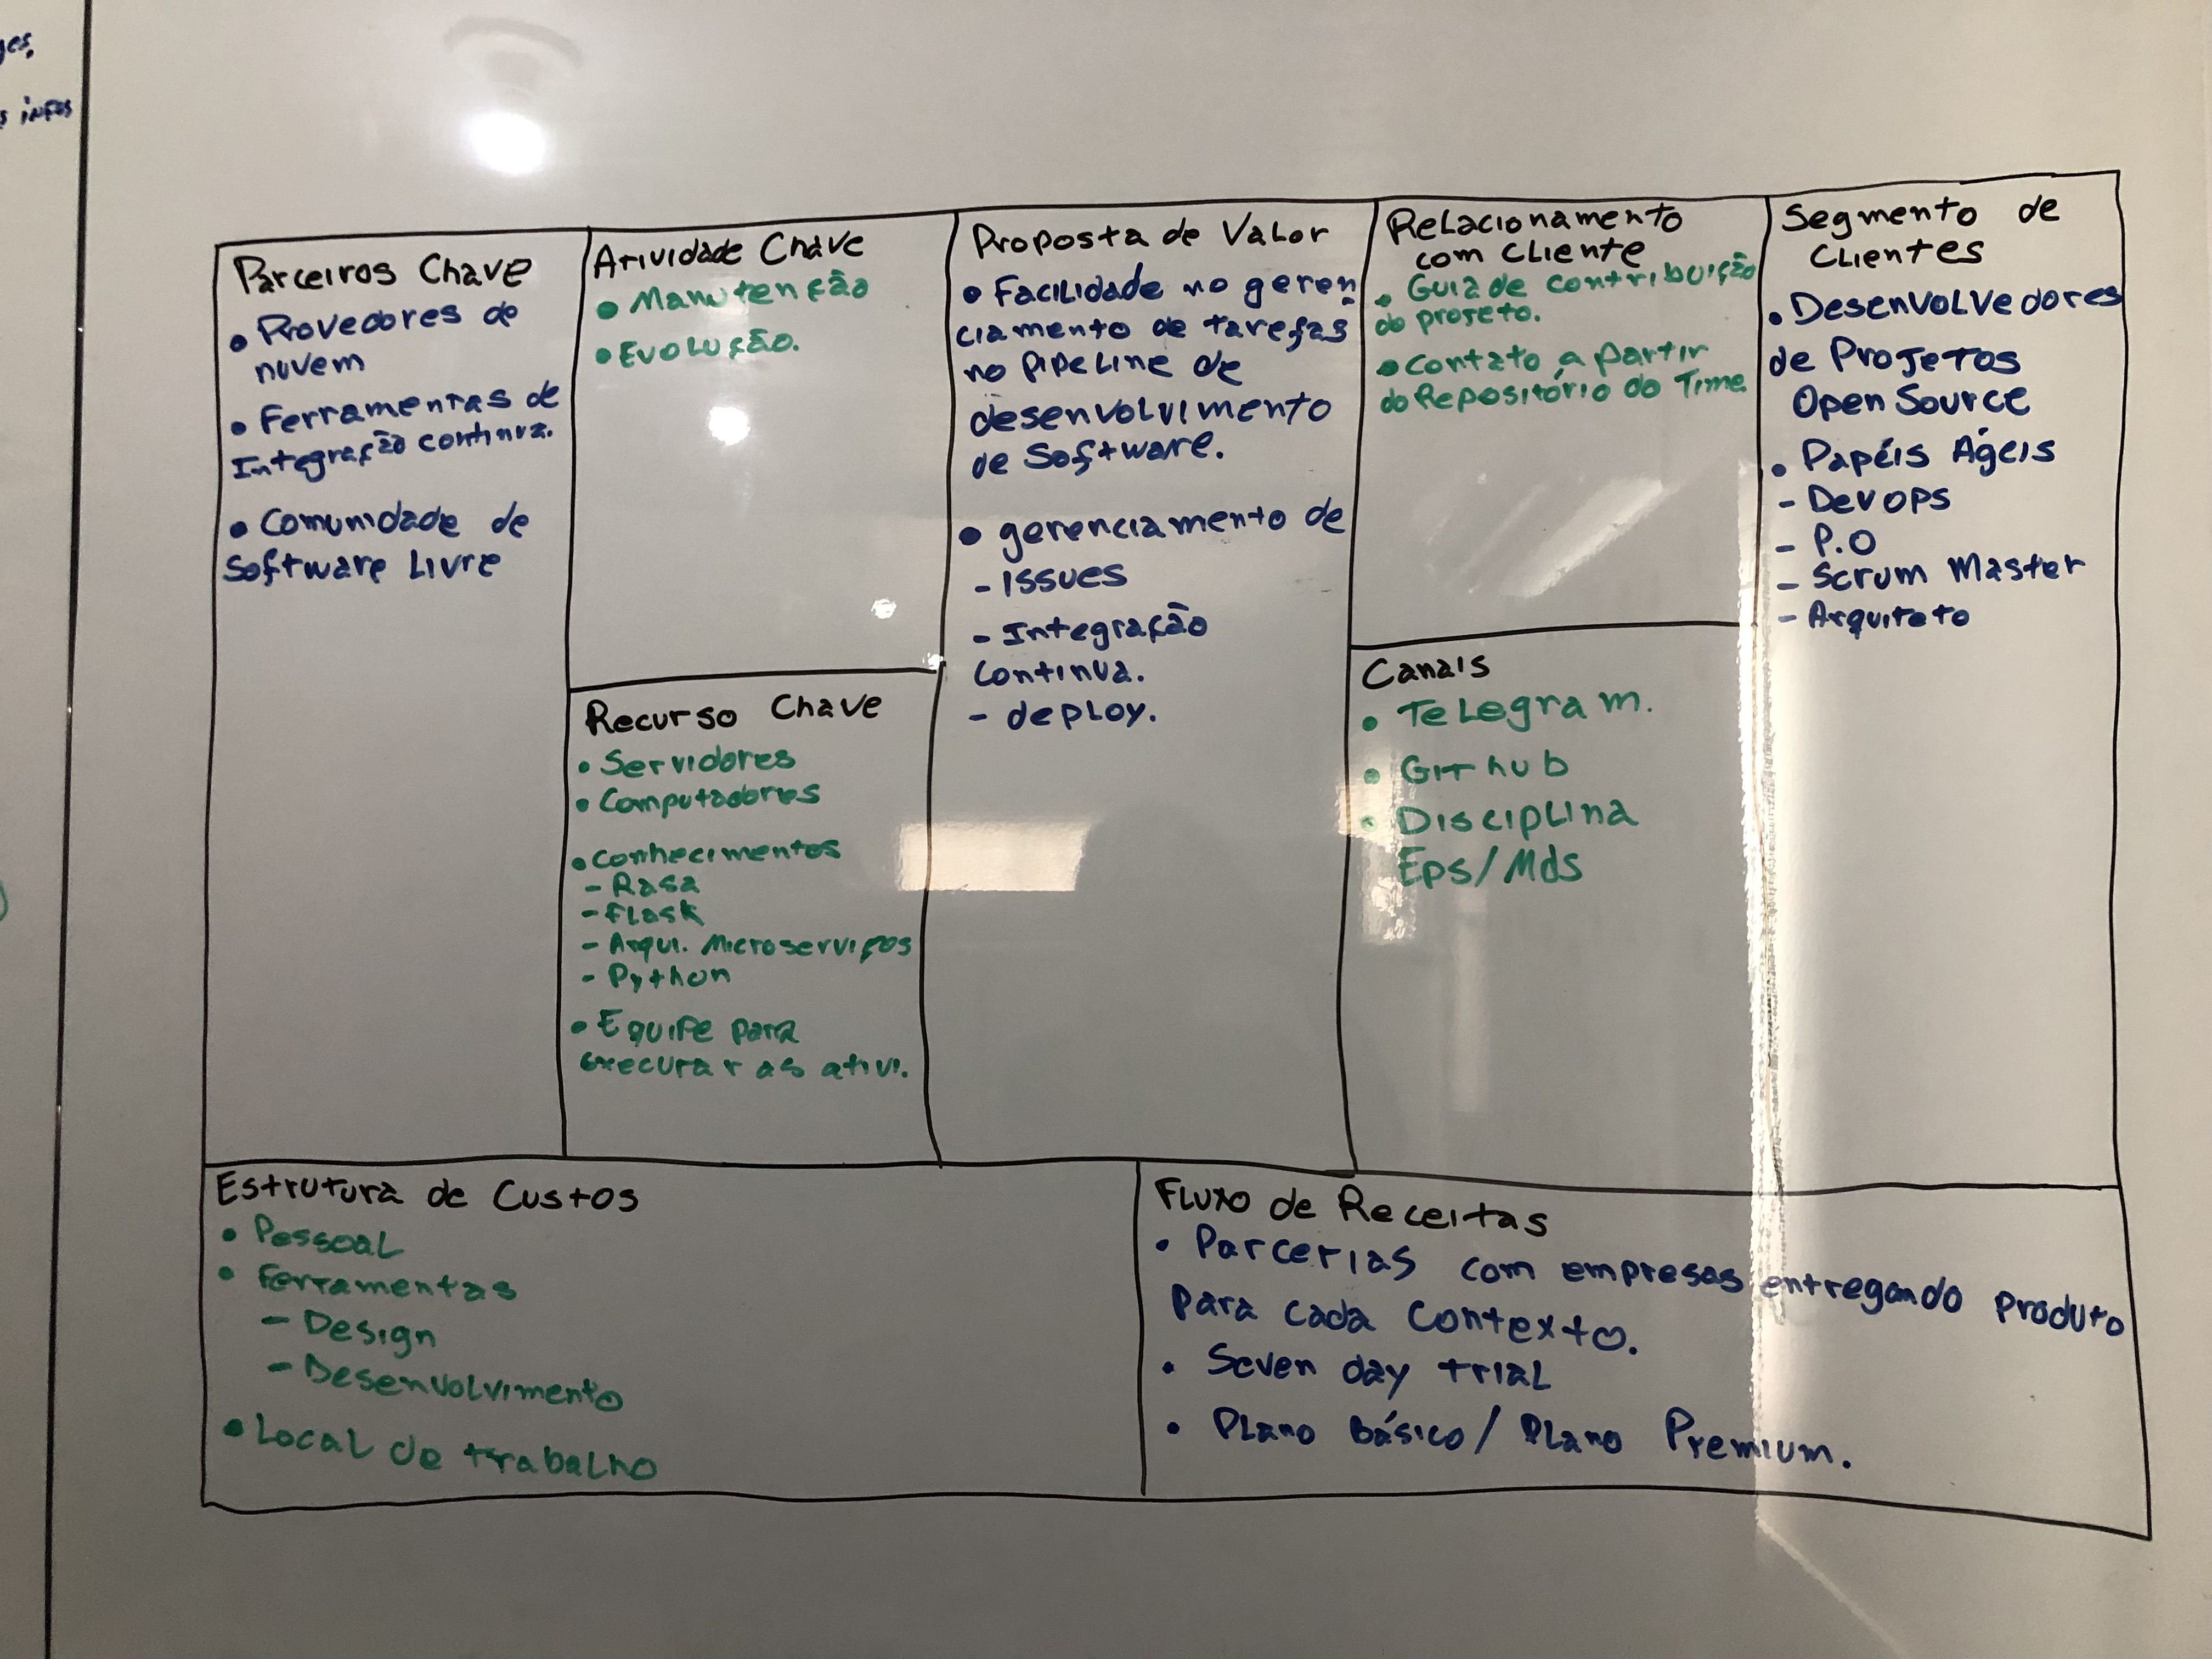 ges,
s infos
Parceiros Chave
• Provedores de
nuvem
• Ferramentas de
Integração continua.
• Comunidade de
Software Livre
Atividade Chave
• Manutenção
• Evolução.
Recurso Chave
• Servidores
• Computadores
• Conhecimentos
- Rasa
- Flask
- Arqui. Microserviços
- Python
• Equipe para
executar as ativi.
Proposta de Valor
• Facilidade no geren
ciamento de tarefas
no pipeline de
desenvolvimento
de Software.
• gerenciamento de
- Issues
- Integração
Continua.
- deploy.
Relacionamento
com cliente
• Guia de contribuição
do projeto.
• Contato a partir
do Repositório do Time
Canais
• Telegram.
• Github
• Disciplina
Eps/Mds
Segmento de
Clientes
• Desenvolvedores
de Projetos
Open Source
• Papéis Ágeis
- Devops
- P.O
- Scrum Master
- Arquiteto
Estrutura de Custos
• Pessoal
• Ferramentas
- Design
- Desenvolvimento
• Local de trabalho
Fluxo de Receitas
• Parcerias com empresas entregando produto
para cada Contexto.
• Seven day trial
• Plano básico / Plano Premium.